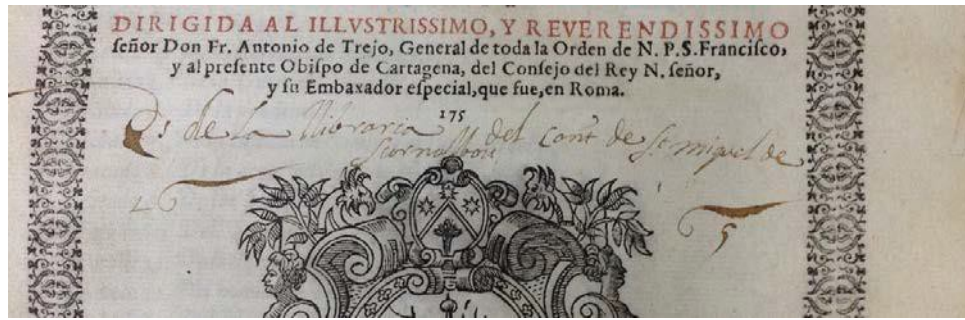 DIRIGIDA AL ILLVSTRISSIMO, Y REVERENDISSIMO
ſeñor Don Fr. Antonio de Trejo, General de toda la Orden de N. P. S. Franciſco,
y al preſente Obiſpo de Cartagena, del Conſejo del Rey N. ſeñor,
y ſu Embaxador eſpecial, que fue, en Roma.
175
Es de la llibraria del Conṽt de St miquel de
Scornalbou